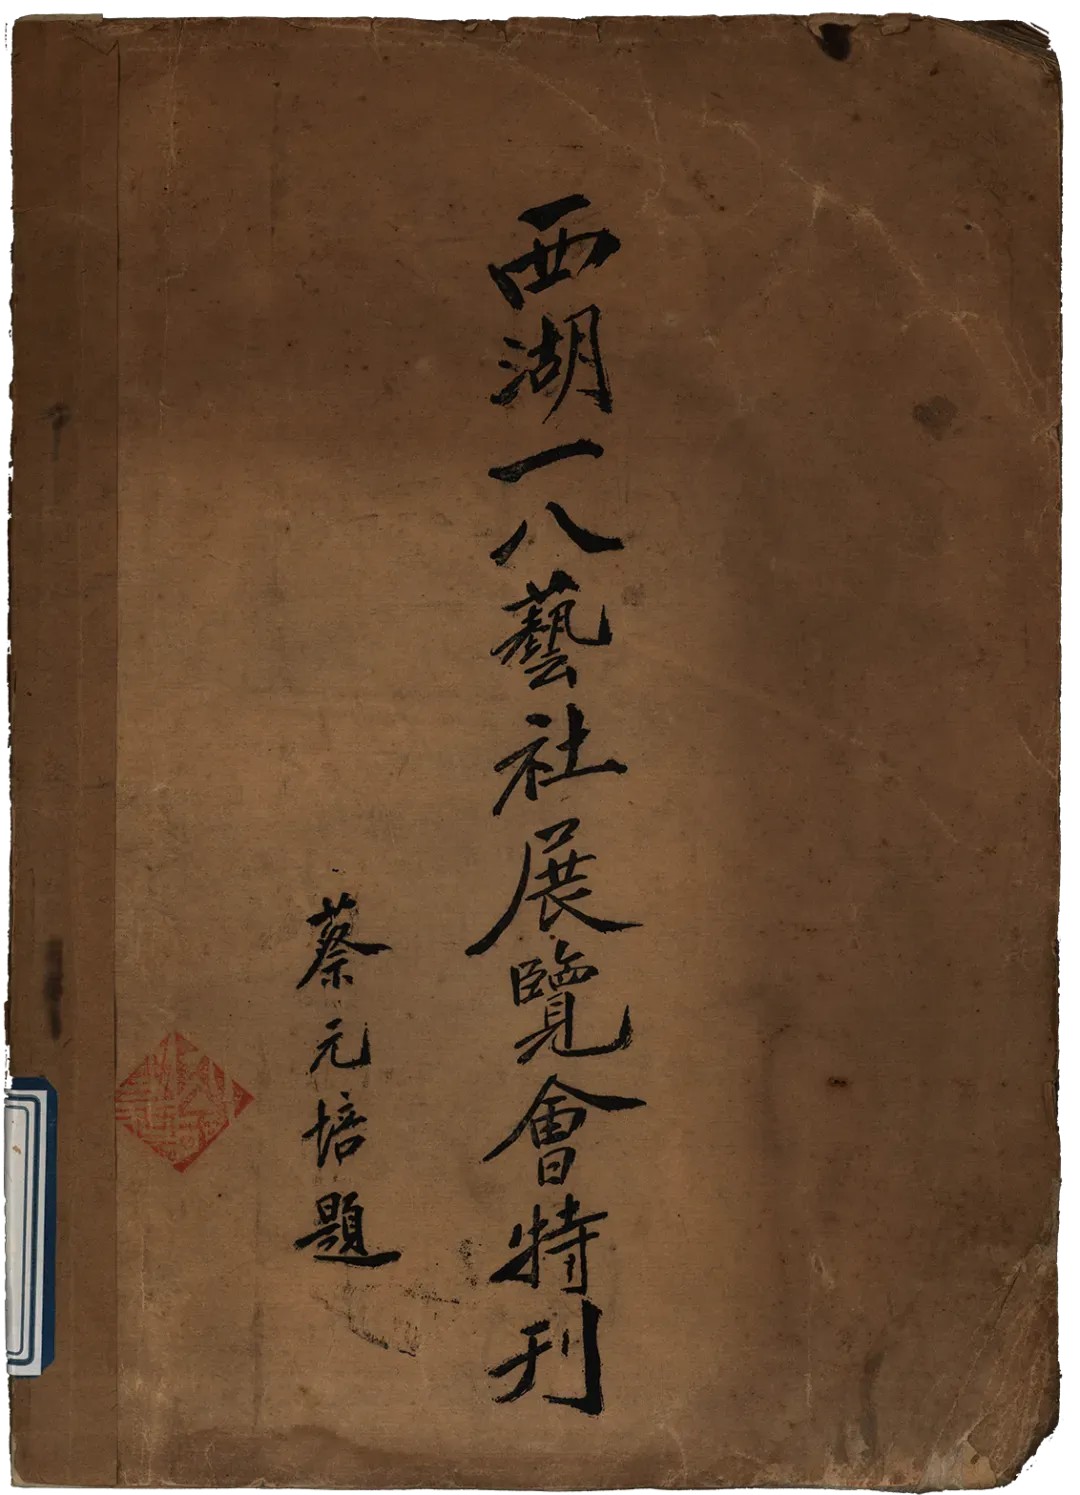 西湖一八藝社展覽會特刊
蔡元培題